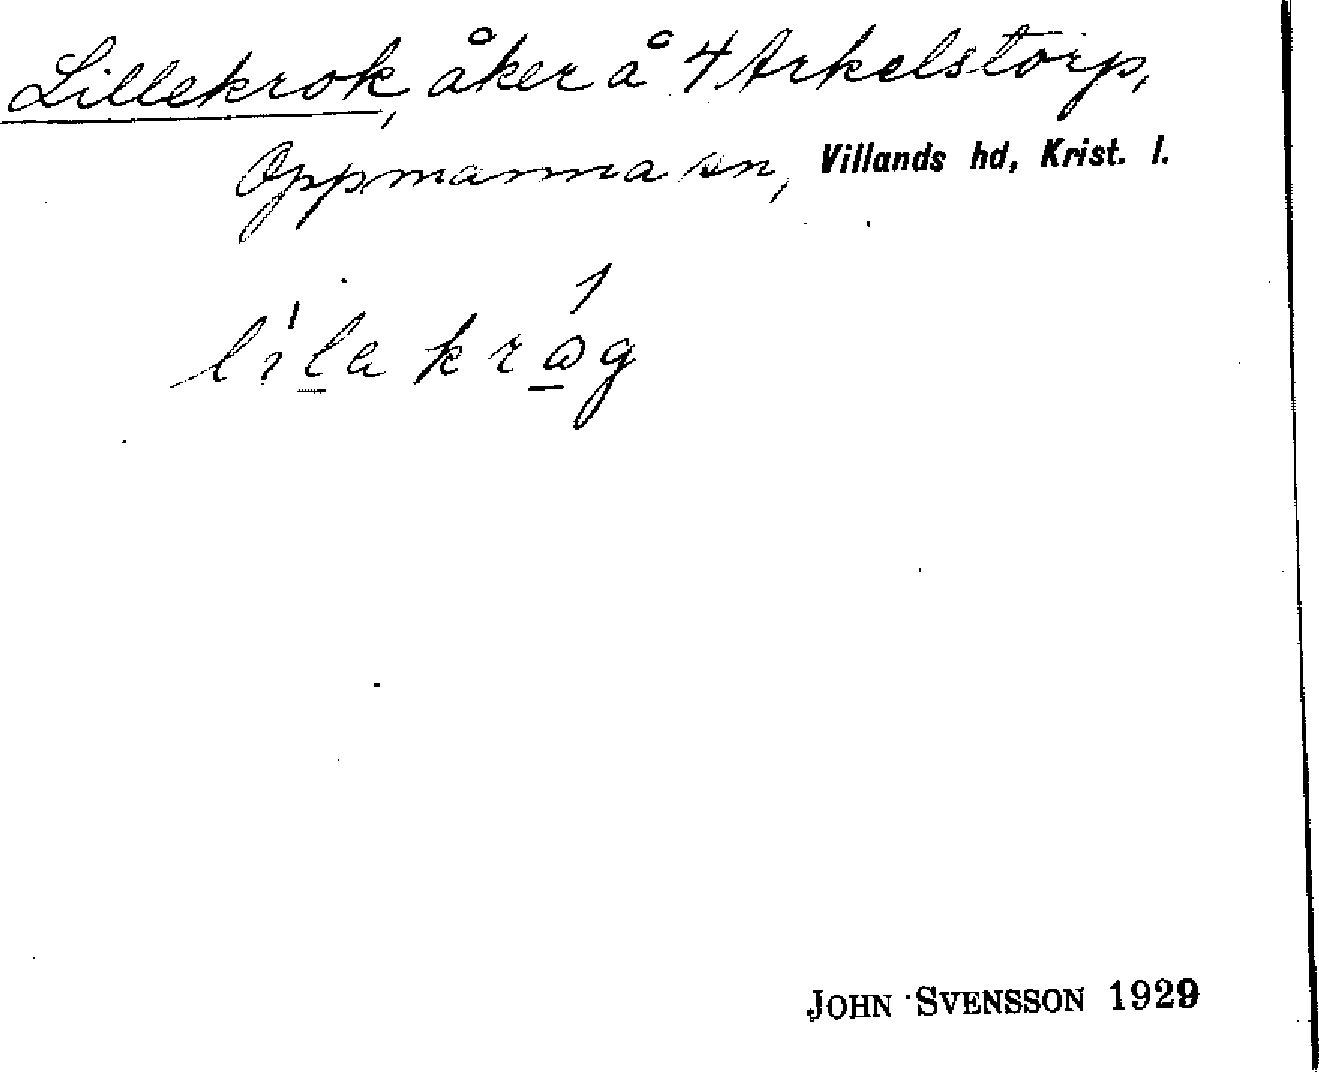 Lillekrok, åker å 4 Arkelstorp,
Oppmanna sn, Villands hd, Krist. l.
lilakråg
JOHN SVENSSON 1929